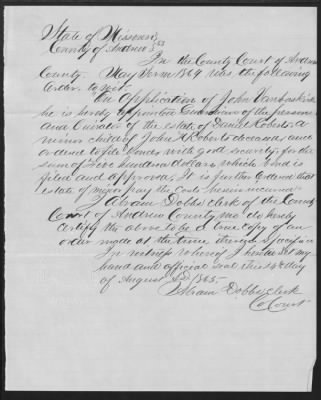 State of Missouri
County of Andrew } SS
In the County Court of Andrew
County May Term 1864 was the following
order to wit
"On Application of John Vanbuskirk
he is hereby appointed Guardian of the person
and Curator of the estate of Daniel Roberts a
minor child of John A Roberts deceased and
ordered to file bond with good security for the
sum of Five hundred dollars which bond is
filed and approved. It is further ordered that
estate of minor pay the costs herein incurred
I Abram Dobbs clerk of the County
Court of Andrew County Mo do hereby
certify the above to be a true copy of an
order made at the time therein specified
In witness whereof I hereunto set my
hand and official seal this day
of August AD 1865.
Abram Dobbs Clerk
Co Court